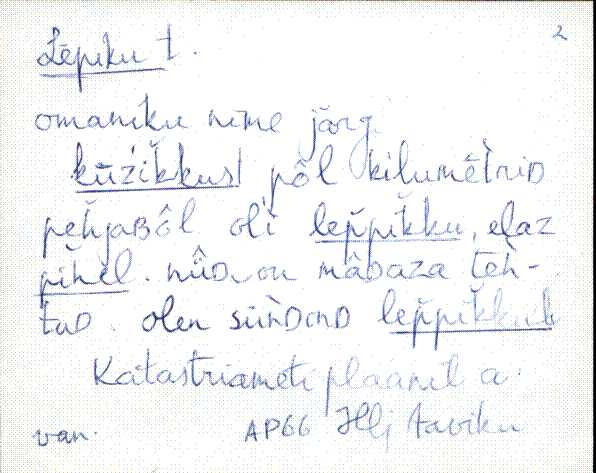 2
Lēpiku t.
omaniku nime järg
kūžikkust pôl kilumētriD
pehjaBôl oĺi lep̆pik̆ku, elaz
pihel. nûDu on mâDaza teh-
tuD. olen sünDinD
Katastriameti plaanil a.
van. AP66 Hlj Aaviku